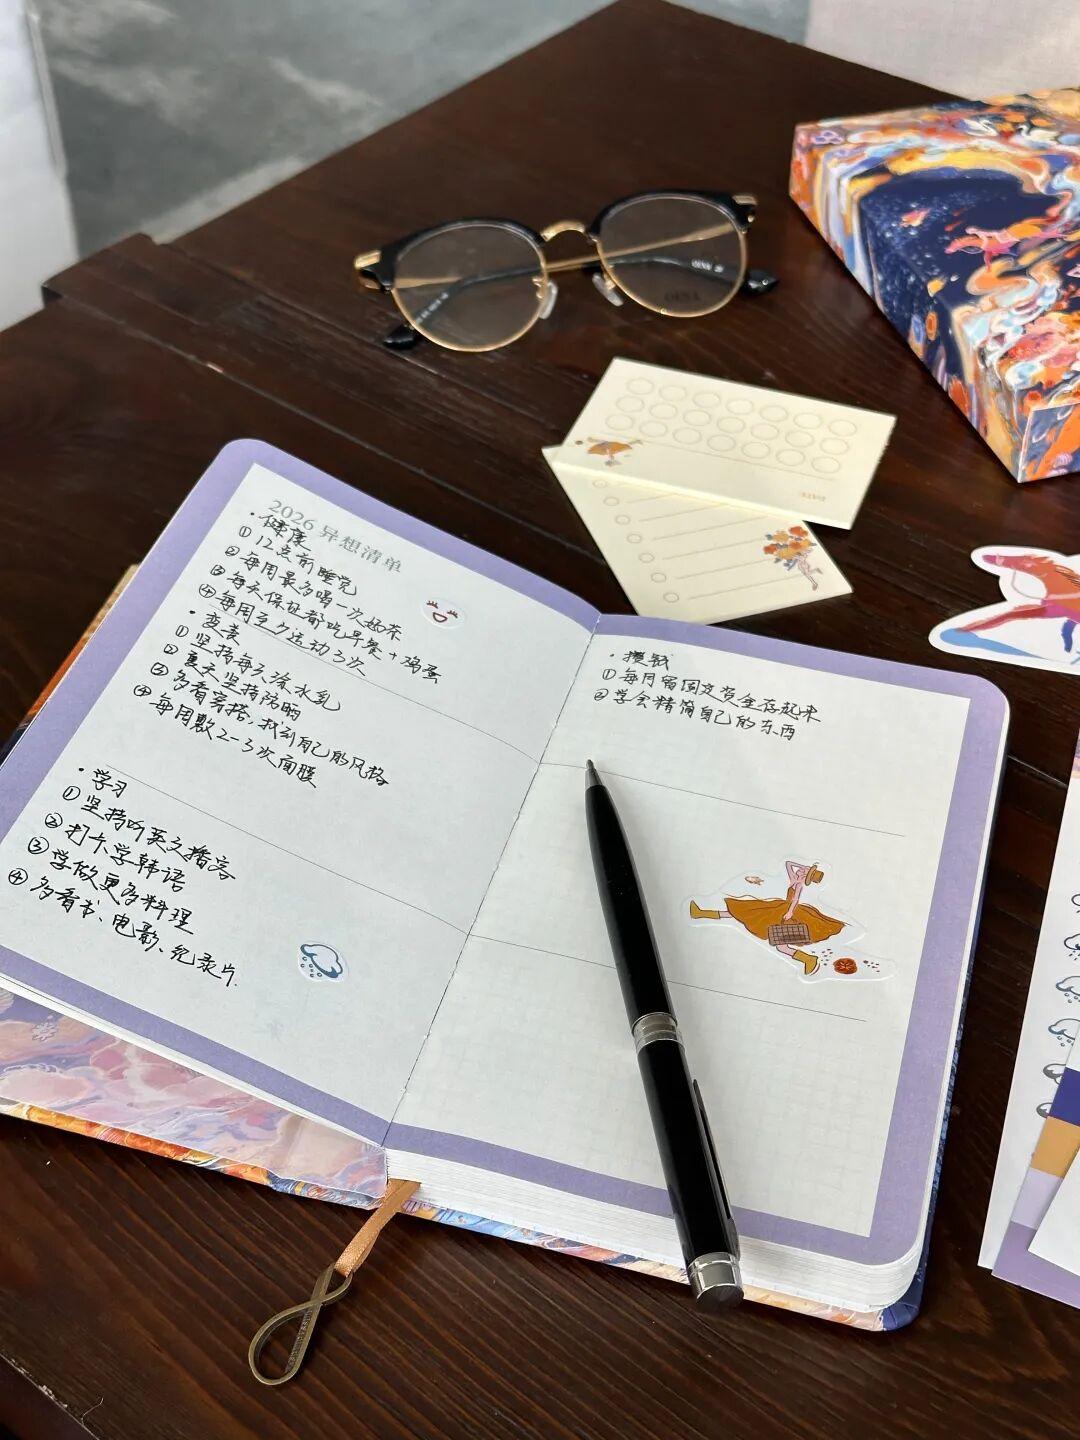 2026 异想清单
·健康
①12点前睡觉
②每周最多喝一次奶茶
③每天保证都吃早餐+鸡蛋
④每周至少运动3次
·变美
①坚持每天涂水乳
②夏天坚持防晒
③多看穿搭，找到自己的风格
④每周敷2-3次面膜
·学习
①坚持听英文播客
②打卡学韩语
③学做更多料理
④多看书、电影、纪录片.
·攒钱
①每月留固定资金存起来
②学会精简自己的东西
DATE: